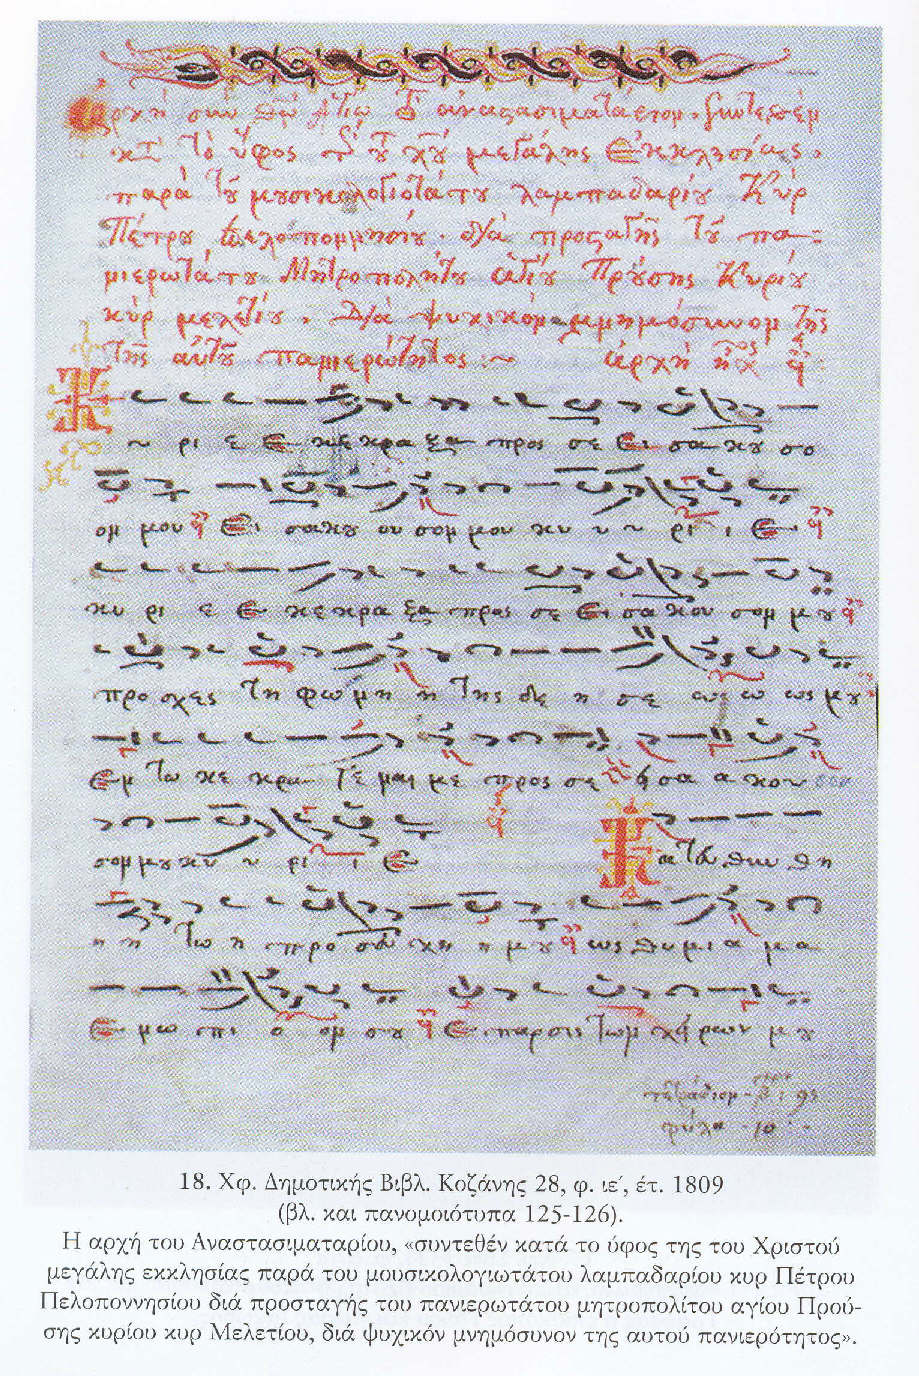 Ἀρχὴ σὺν Θῷ ἁγίῳ τοῦ ἀναστασιματάριον, συντεθὲν
κατὰ τὸ ὕφος τῆς τοῦ Χῦ μεγάλης Ἐκκλησίας,
παρὰ τοῦ μουσικολογιοτάτου λαμπαδαρίου Κὺρ
Πέτρου Πελοπονησίου. διὰ προσταγῆς τοῦ πα-
νιερωτάτου Μητροπολήτου ἁγίου Προύσης Κυρίου
κὺρ μελετίου, διὰ ψυχικὸν μνημόσυνον τῆς
τῆς αὐτοῦ πανιερώτητος:~ ἀρχὴ ἦχος
υ ρι ε ε κε κρα ξα προς σε ει σα κου σο
ομ μου Ει σακου ου σομ μου κυ υ υ ρι ι ε
κυ ρι ε ε κε κρα ξα προς σε ει σα κου σομ μου
προ σχες τη φω νη η της δε η σε ω ω ως μου
Εν τω κε κρα γε ναι με προς σε σα α κου
σομ μου κυ υ ρι ι ε Κ α τευ θυν θη
η η τω η προ σευ χη η μου ως θυμι α μα
Ε νω πι ο ον σου Ε παρσις των χει ρων μου
τετράδιον
φύλα 10
18. Χφ. Δημοτικής Βιβλ. Κοζάνης 28, φ. ιε΄, έτ. 1809
(βλ. και πανομοιότυπα 125-126).
Η αρχή του Αναστασιματαρίου, «συντεθέν κατά το ύφος της του Χριστού
μεγάλης εκκλησίας παρά του μουσικολογιωτάτου λαμπαδαρίου κυρ Πέτρου
Πελοποννησίου διά προσταγής του πανιερωτάτου μητροπολίτου αγίου Πρού-
σης κυρίου κυρ Μελετίου, διά ψυχικόν μνημόσυνον της αυτού πανιερότητος».